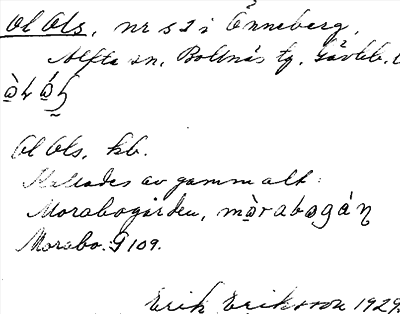 Ol Ols, nr 52 i Önneberg,
Alfta sn, Bollnäs tg, Gävleb. l
Ol Ols, kb.
Kallades av gammalt:
Morabogården, mòrabogá
Morabo. G 109.
Erik Eriksson 1929.